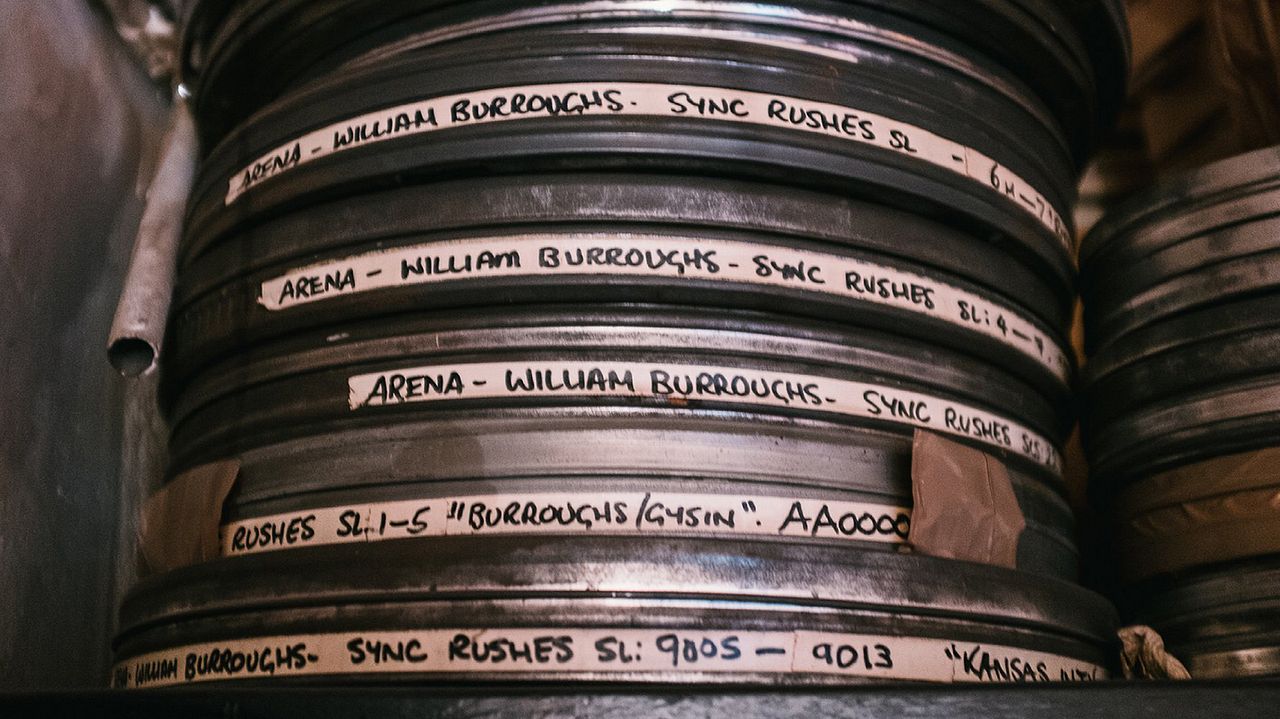 ARENA - WILLIAM BURROUGHS. SYNC RUSHES SL -
ARENA - WILLIAM BURROUGHS - SYNC RUSHES SL: 4 -
ARENA - WILLIAM BURROUGHS - SYNC RUSHES
RUSHES SL: 1-5 "BURROUGHS/GYSIN". AA0000
WILLIAM BURROUGHS - SYNC RUSHES SL: 9005 - 9013 "KANSAS